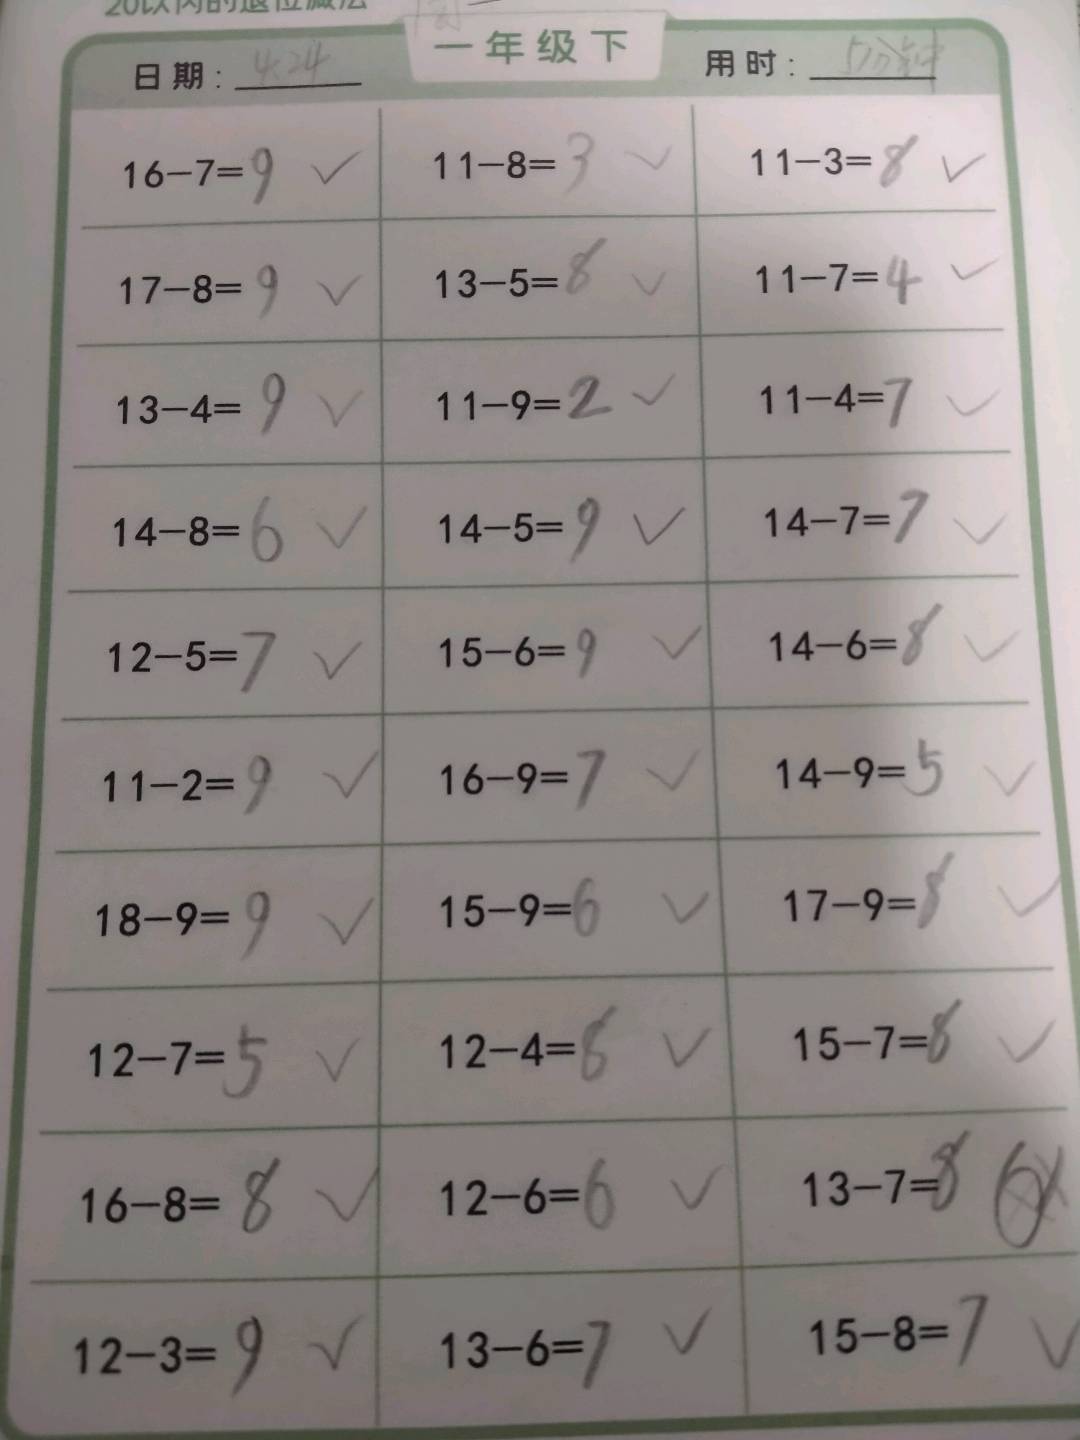 20以内的退位减法
一年级下
日期：4.24 用时：5分钟
16-7=9 ✓ 11-8=3 ✓ 11-3=8 ✓
17-8=9 ✓ 13-5=8 ✓ 11-7=4 ✓
13-4=9 ✓ 11-9=2 ✓ 11-4=7 ✓
14-8=6 ✓ 14-5=9 ✓ 14-7=7 ✓
12-5=7 ✓ 15-6=9 ✓ 14-6=8 ✓
11-2=9 ✓ 16-9=7 ✓ 14-9=5 ✓
18-9=9 ✓ 15-9=6 ✓ 17-9=8 ✓
12-7=5 ✓ 12-4=8 ✓ 15-7=8 ✓
16-8=8 ✓ 12-6=6 ✓ 13-7=8 6
12-3=9 ✓ 13-6=7 ✓ 15-8=7 ✓